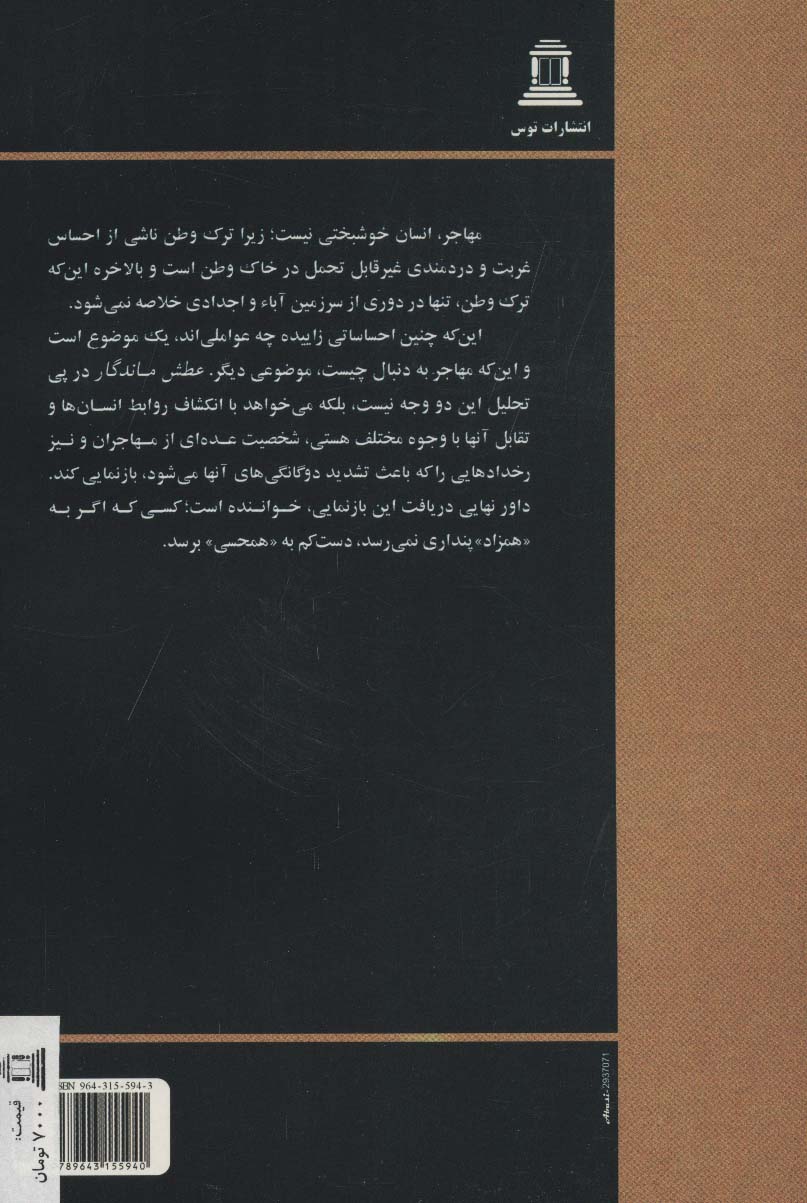 انتشارات توس
مهاجر، انسان خوشبختی نیست؛ زیرا ترک وطن ناشی از احساس
غربت و دردمندی غیرقابل تحمل در خاک وطن است و بالاخره این‌که
ترک وطن، تنها در دوری از سرزمین آباء و اجدادی خلاصه نمی‌شود.
این‌که چنین احساساتی زاییده چه عواملی‌اند، یک موضوع است
و این‌که مهاجر به دنبال چیست، موضوعی دیگر. عطش ماندگار در پی
تحلیل این دو وجه نیست، بلکه می‌خواهد با انکشاف روابط انسان‌ها و
تقابل آنها با وجوه مختلف هستی، شخصیت عده‌ای از مهاجران و نیز
رخدادهایی را که باعث تشدید دوگانگی‌های آنها می‌شود، بازنمایی کند.
داور نهایی دریافت این بازنمایی، خواننده است؛ کسی که اگر به
«همزاد» پنداری نمی‌رسد، دست‌کم به «همحسی» برسد.
Abasi-2937071
ISBN 964-315-594-3
789643 155940
قیمت:
۷۰۰۰ تومان